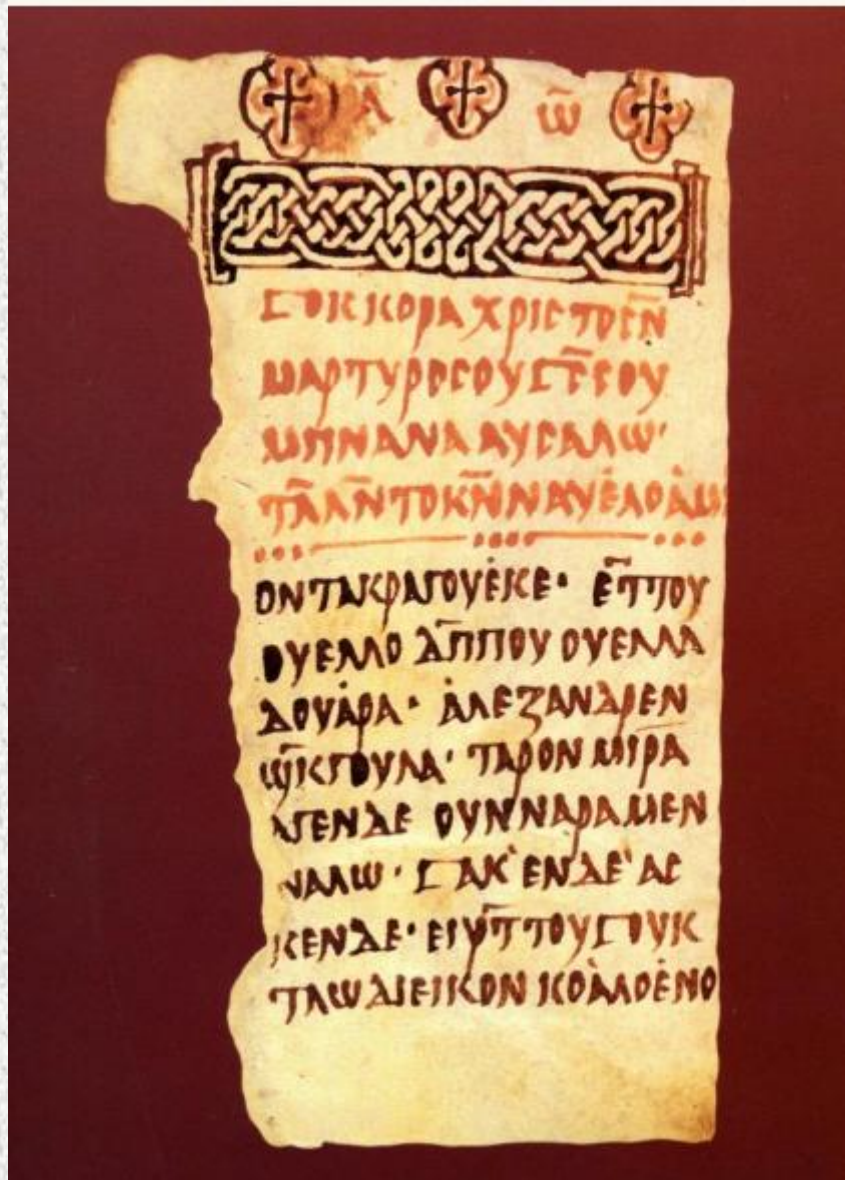 ⲁ̄ ⲱ̄
ⳟⲟⲕⲕⲟⲣⲁ ⲭⲣⲓⲥⲧⲟⲥⲛ̄
ⲙⲁⲣⲧⲩⲣⲟⲥⲟⲩ ⳟⲥ̄ⲥⲟⲩ
ⲙⲏⲛⲁⲛⲁ ⲁⲩⲥⲁⲗⲱ·
ⲧⲗ̄ⲗⲛ̄ ⲧⲟⲕⲛ̄ⲛⲁ
ⲟⲛ ⲧⲁⲕⲣⲁ ⳝⲟⲩⲉ̇ⲕⲉ· ⲉⲓ̄ⲧⲧⲟⲩ
ⲟⲩⲉⲗⲗⲟ ⲇ̄ⲡⲡⲟⲩ ⲟⲩⲉⲗⲗⲁ
ⲇⲟⲩⲁ̇ⲣⲁ· ⲁ̇ⲗⲉⲝⲁⲛⲇⲣⲉⲛ
ⲱ̄ⲕⳝⲟⲩⲗⲁ· ⲧⲁⲣⲟⲛ ⲙⲓ̄ⲣⲁ
ⲁⳝⲉⲛⲇⲉ ⲟⲩⲛⲛⲁⲣⲁ ⲙⲉⲛ
ⲛⲁⲗⲱ· ⳟⲁⲕ ⲉⲛⲇⲉ ⲁⲥ
ⲕⲉⲛⲇⲉ· ⲉⲓⲣⲧ̄ⲧⲟⲩ ⳟⲟⲩⲕ
ⲧⲗⲱ ⲇⲓⲉⲓⲕⲟⲛ ⲕⲟⲁ̇ⲗⲟ ⲉ̇ⲛⲟ